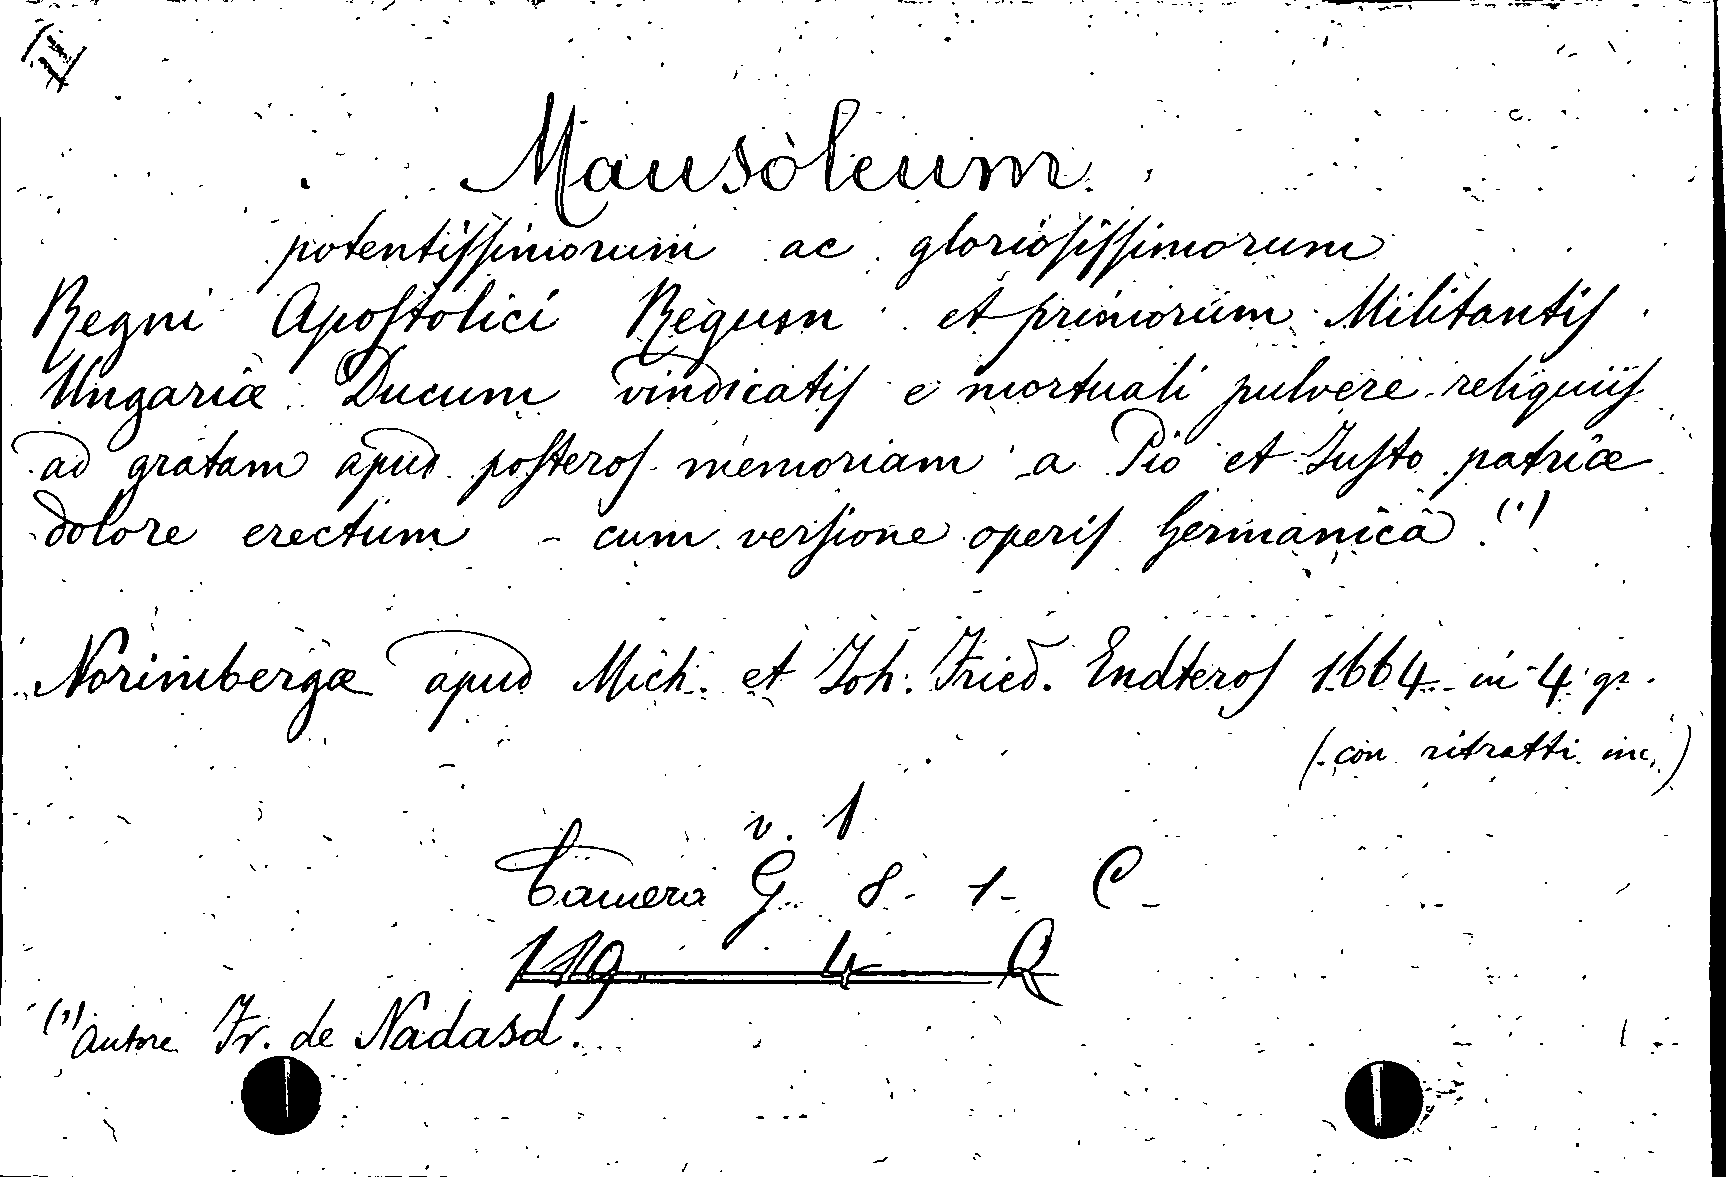 II
Mausoleum
potentissimorum ac gloriosissimorum
Regni Apostolici Regum et primorum Militantis
Ungariæ Ducum vindicatis e mortuali pulvere reliquiis
ad gratam apud posteros memoriam a Pio et Justo patriæ
dolore erectum - cum versione operis Germanicâ (1)
Norimbergæ apud Mich. et Joh. Fried. Endteros 1664 in 4 gr.
(con ritratti inc.)
v. 1
Camera G 8- 1- C-
119 4 Q
(1) autore Fr. de Nadasd.